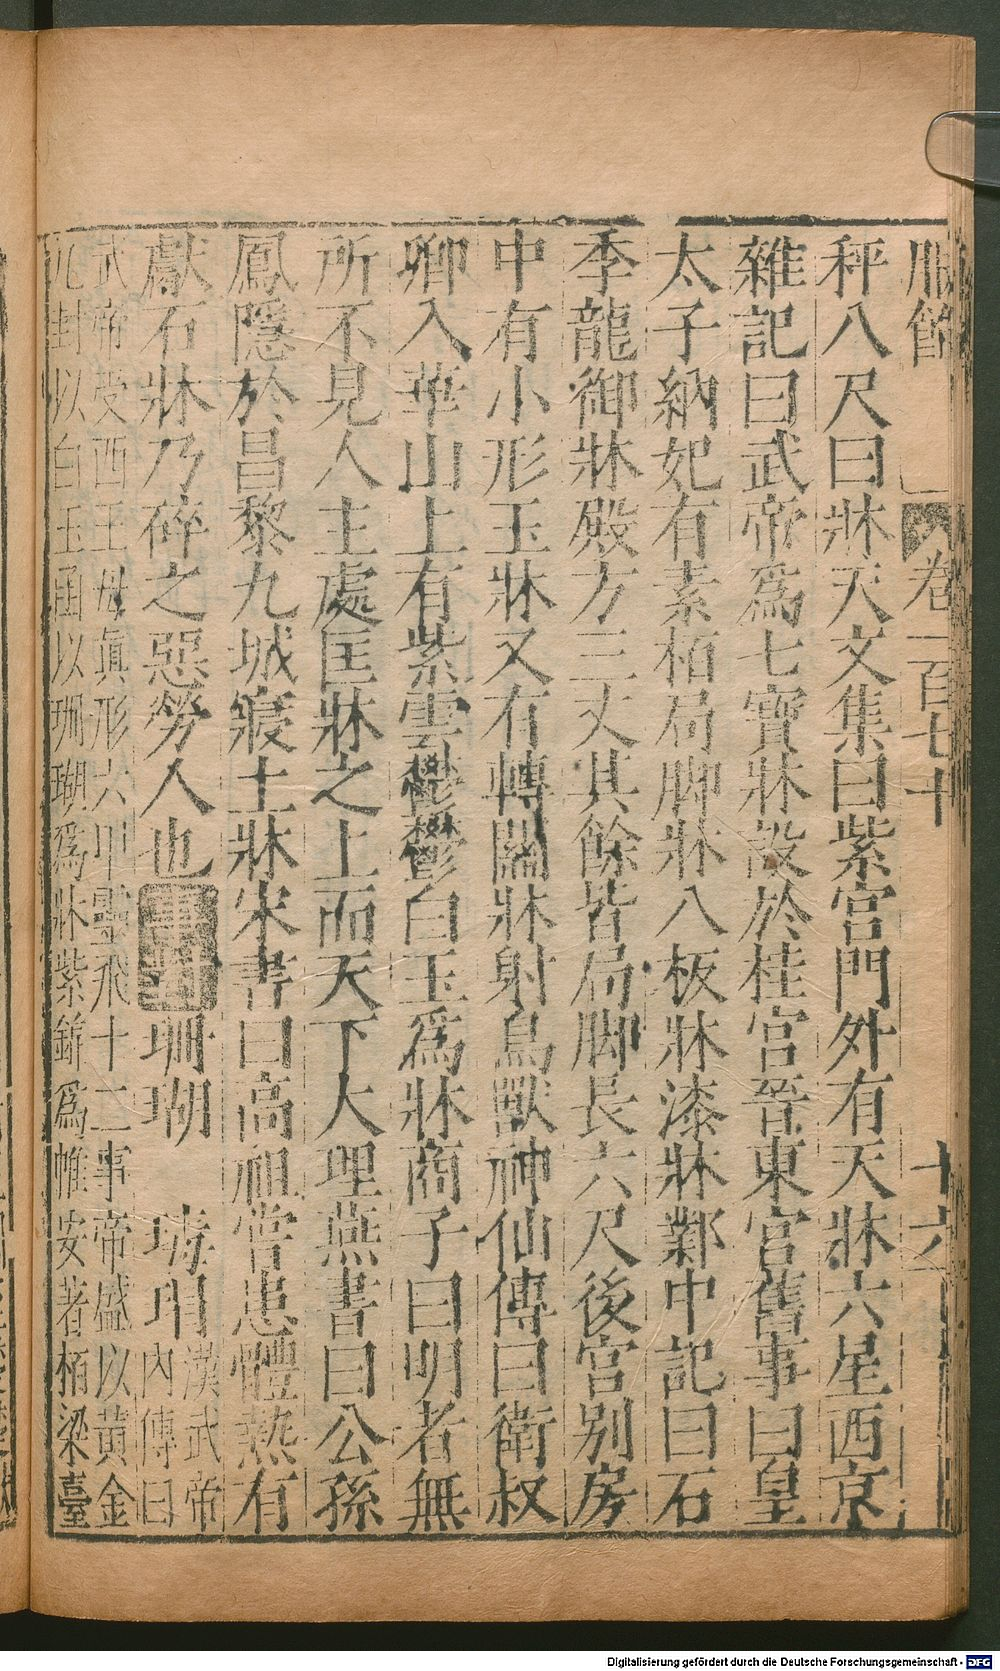 服飾
卷一百七十
十六
秤八尺曰牀天文集曰紫宮門外有天牀六星西京
雜記曰武帝爲七寶牀設於桂宮晉東宮舊事曰皇
太子納妃有素栢局脚牀八板牀漆牀鄴中記曰石
季龍御牀殿方三丈其餘皆局脚長六尺後宮别房
中有小形玉牀又有轉關牀射鳥獸神仙傳曰衛叔
卿入華山上有紫雲鬱鬱白玉爲牀商子曰明者無
所不見人主處匡牀之上而天下大理燕書曰公孫
鳳隱於昌黎九城寢土牀宋書曰高祖嘗患體熱有
獻石牀乃碎之惡勞人也事對珊瑚 瑇瑁漢武帝
內傳曰
武帝受西王母眞形六甲靈飛十二事帝盛以黃金
几封以白玉函以珊瑚爲牀紫錦爲帷安著栢梁臺
Digitalisierung gefördert durch die Deutsche Forschungsgemeinschaft - DFG